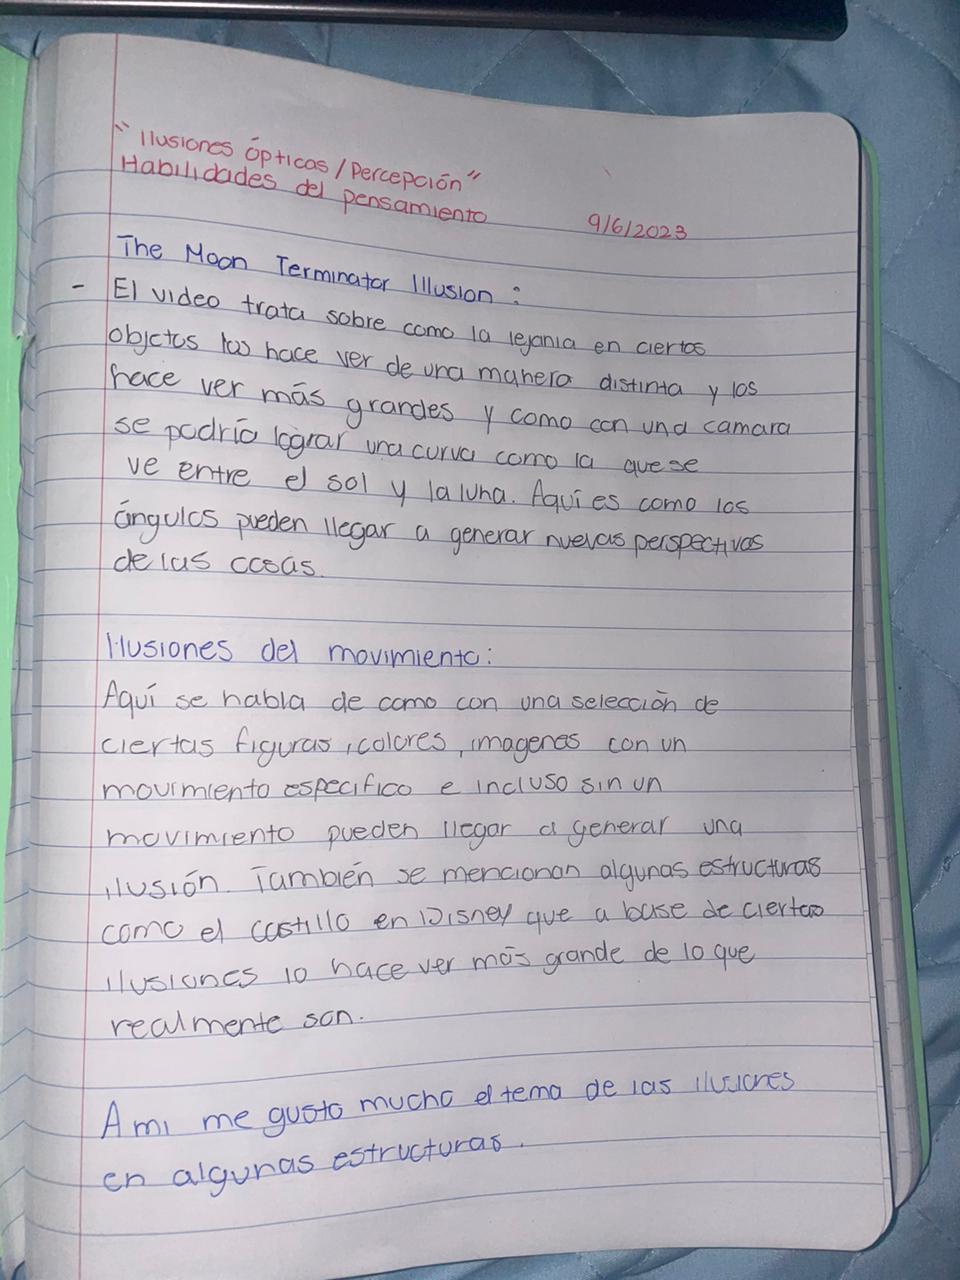 "Ilusiones ópticas/Percepción"
Habilidades del pensamiento 9/6/2023
The Moon Terminator Illusion:
- El video trata sobre como la lejania en ciertos
objetos los hace ver de una manera distinta y los
hace ver más grandes y como con una camara
se podría lograr una curva como la que se
ve entre el sol y la luna. Aquí es como los
ángulos pueden llegar a generar nuevas perspectivas
de las cosas.
Ilusiones del movimiento:
Aquí se habla de como con una selección de
ciertas figuras, colores, imagenes con un
movimiento especifico e incluso sin un
movimiento pueden llegar a generar una
ilusión. También se mencionan algunas estructuras
como el castillo en Disney que a base de ciertas
ilusiones lo hace ver más grande de lo que
realmente son.
A mi me gusto mucho el tema de las ilusiones
en algunas estructuras.